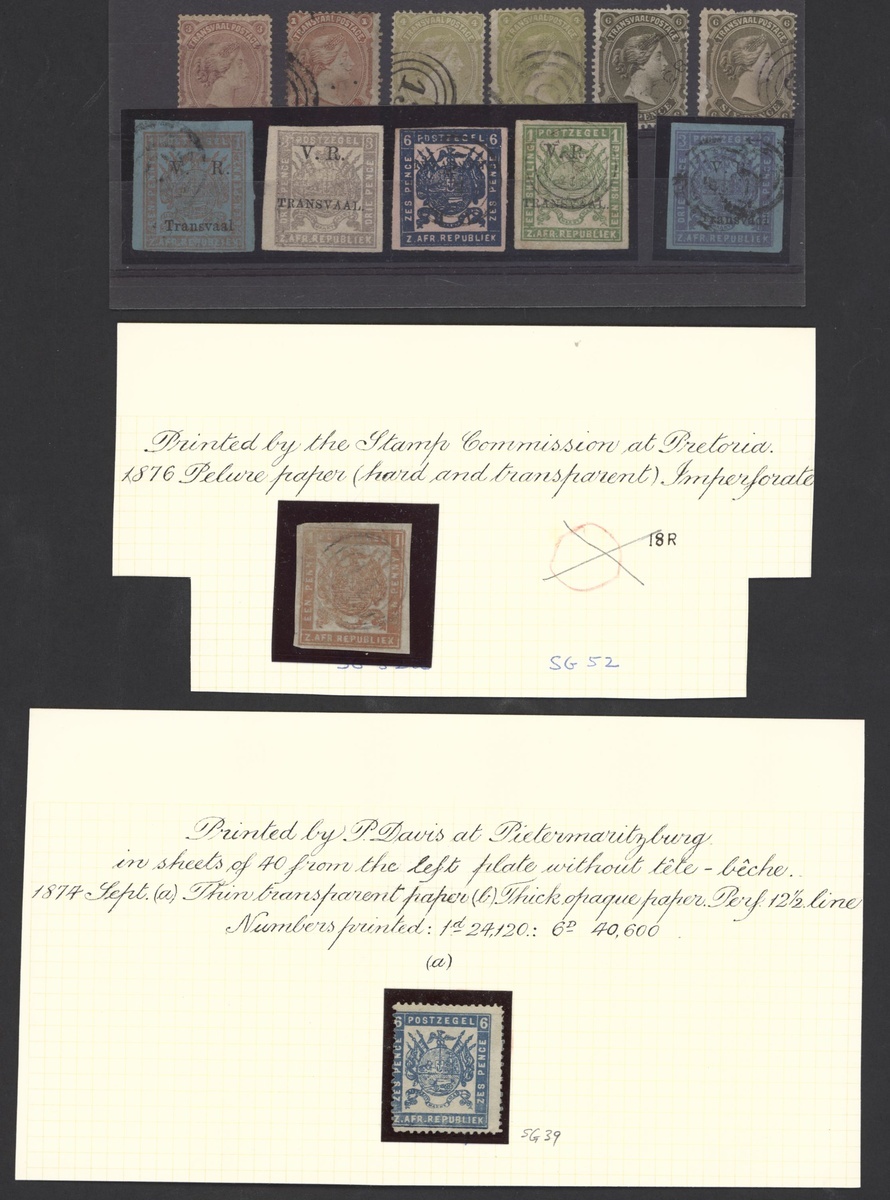 TRANSVAAL POSTAGE
TRANSVAAL POSTAGE
TRANSVAAL POSTAGE
TRANSVAAL POSTAGE
6 TRANSVAAL POSTAGE 6
6 TRANSVAAL POSTAGE 6
PENCE
PENCE
V. R.
Transvaal
Z. AFR. REPUBLIEK
3 POSTZEGEL 3
DRIE PENCE
V. R.
TRANSVAAL.
DRIE PENCE
Z. AFR. REPUBLIEK
6 POSTZEGEL 6
ZES PENCE
ZES PENCE
Z. AFR. REPUBLIEK
1 POSTZEGEL 1
V. R.
TRANSVAAL.
Z. AFR. REPUBLIEK
Transvaal
Z. AFR. REPUBLIEK
Printed by the Stamp Commission at Pretoria.
1876 Pelure paper (hard and transparent) Imperforate
18R
1
EEN PENNY
EEN PENNY
Z. AFR. REPUBLIEK
SG 52
Printed by P. Davis at Pietermaritzburg
in sheets of 40 from the left plate without tête - bêche.
1874 Sept. (a) Thin transparent paper (b) Thick opaque paper. Perf. 12½ line
Numbers printed: 1d 24,120.: 6D 40,600
(a)
6 POSTZEGEL 6
ZES PENCE
ZES PENCE
Z. AFR. REPUBLIEK
SG 39